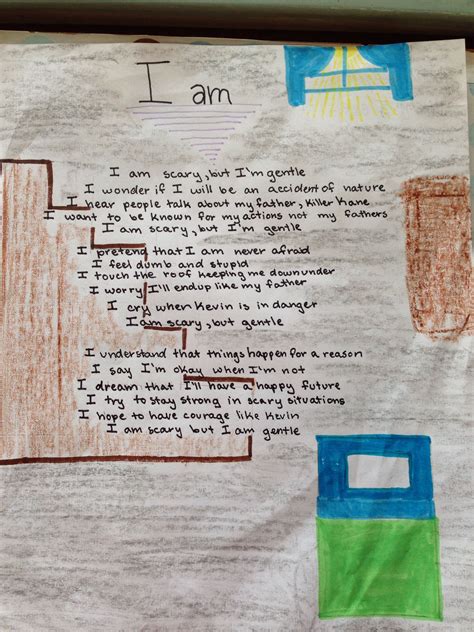 I am
I am scary, but I'm gentle
I wonder if I will be an accident of nature
I hear people talk about my father, Killer Kane
I want to be known for my actions not my fathers
I am scary, but I'm gentle
I pretend that I am never afraid
I feel dumb and stupid
I touch the roof keeping me down under
I worry I'll endup like my father
I cry when Kevin is in danger
I am scary, but gentle
I understand that things happen for a reason
I say I'm okay when I'm not
I dream that I'll have a happy future
I try to stay strong in scary situations
I hope to have courage like Kevin
I am scary but I am gentle